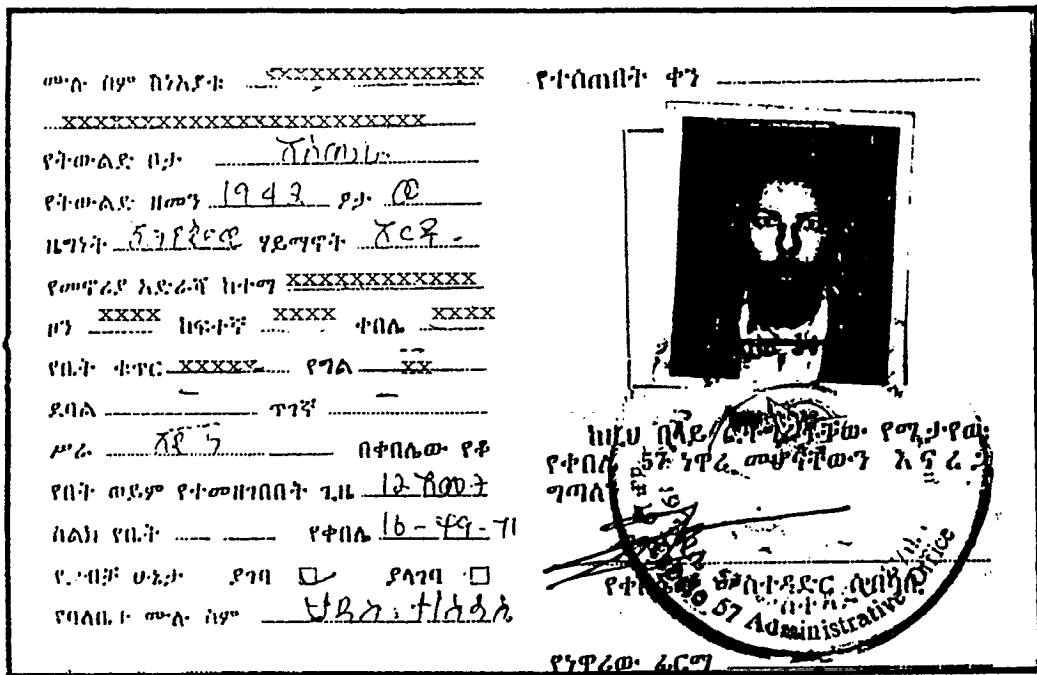 ሙሉ ስም ከነአያቱ xxxxxxxxxxxxxx
xxxxxxxxxxxxxxxxxxxxxxx
የትውልድ ቦታ አስመራ
የትውልድ ዘመን 1943 ፆታ ወ
ዜግነት ኢትዮጵያዊ ሃይማኖት ኦርቶ.
የመኖሪያ አድራሻ ከተማ xxxxxxxxxxxx
ዞን xxxx ከፍተኛ xxxx ቀበሌ xxxx
የቤት ቁጥር xxxxx የግል xx
ደባል — ጥገኛ —
ሥራ በቀበሌው የቆ
የበት ወይም የተመዘገበበት ጊዜ 12 ዓመት
ስልክ የቤት የቀበሌ 16-49-71
የጋብቻ ሁኔታ ያገባ ያላገባ
የባለቤት ሙሉ ስም
የተሰጠበት ቀን
ከዚህ በላይ ፎቶግራፋቸው የሚታየው
የቀበሌ 57 ነዋሪ መሆናቸውን እናረጋ
ግጣለን
የቀበሌው አስተዳደር ሊቀመንበር
57 Administrative Office
የነዋሪው ፊርማ